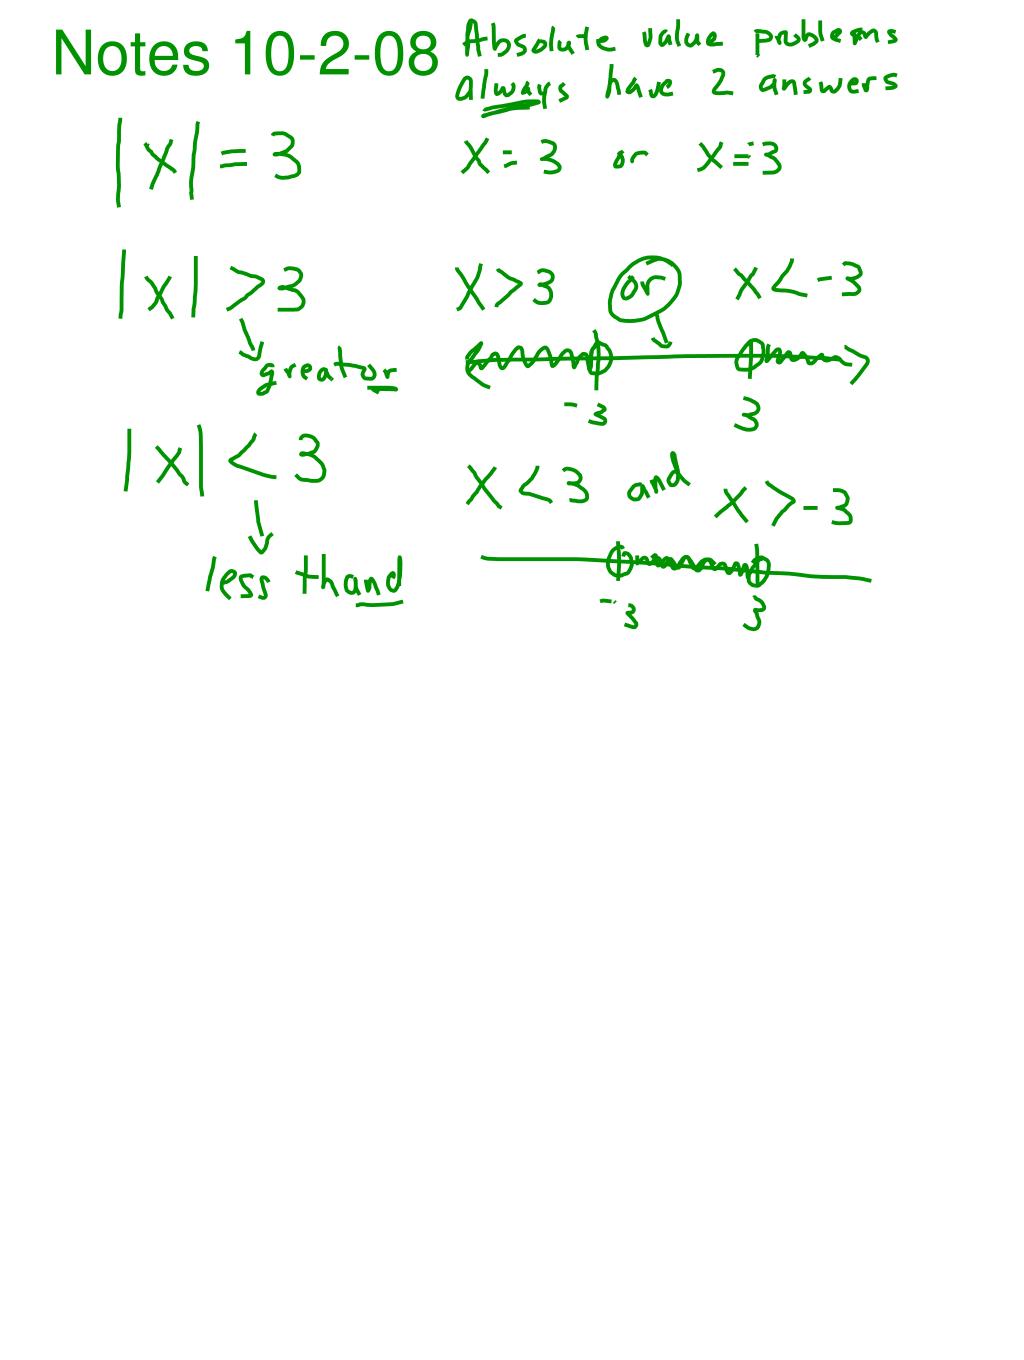 Notes 10-2-08 Absolute value problems
always have 2 answers
|x| = 3 x = 3 or x = -3
|x| > 3 x > 3 or x < -3
greator
-3 3
|x| < 3 x < 3 and x > -3
less thand
-3 3